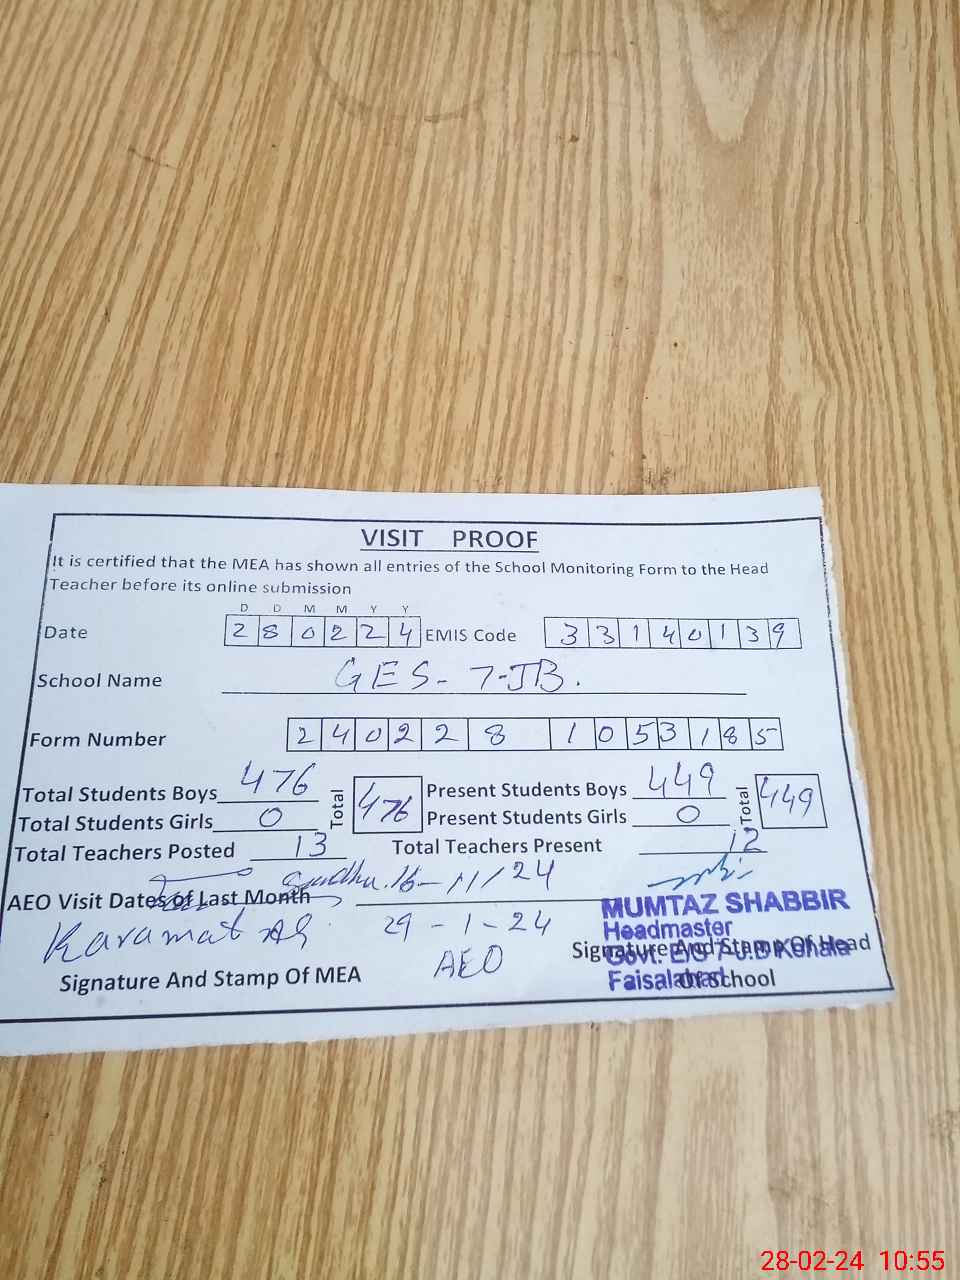 VISIT PROOF
It is certified that the MEA has shown all entries of the School Monitoring Form to the Head
Teacher before its online submission
D D M M Y Y
Date 280224 EMIS Code 33140139
School Name GES-7-JB.
Form Number 2402281053185
Total Students Boys 476 Total 476 Present Students Boys 449 Total 449
Total Students Girls 0 Present Students Girls 0
Total Teachers Posted 13 Total Teachers Present 12
AEO Visit Dates of Last Month
29-1-24
Karamat Ali
AEO
Signature And Stamp Of MEA
MUMTAZ SHABBIR
Headmaster
Govt. E/S 7 J.B Kohala
Faisalabad
Signature And Stamp Of Head
Of School
28-02-24 10:55